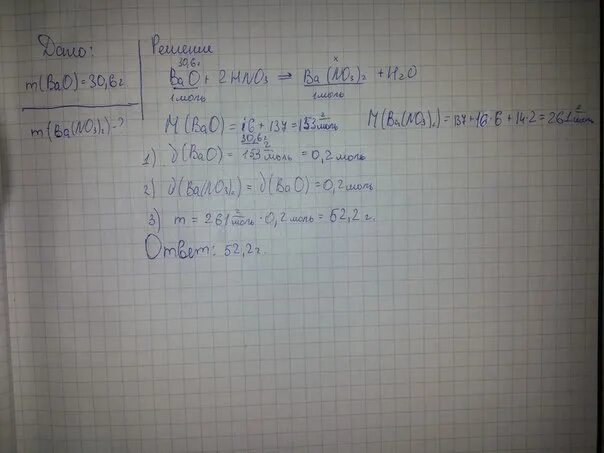 Дано:
m(BaO)=30,6г
m(Ba(NO₃)₂)-?
Решение
30,6г x
BaO + 2HNO₃ = Ba(NO₃)₂ + H₂O
1моль 1моль
M(BaO) = 16 + 137 = 153 г/моль M(Ba(NO₃)₂) = 137+16·6+14·2=261 г/моль
1) ν(BaO) = 30,6г / 153 г/моль = 0,2моль
2) ν(Ba(NO₃)₂) = ν(BaO) = 0,2моль
3) m = 261 г/моль · 0,2моль = 52,2 г.
Ответ: 52,2г.